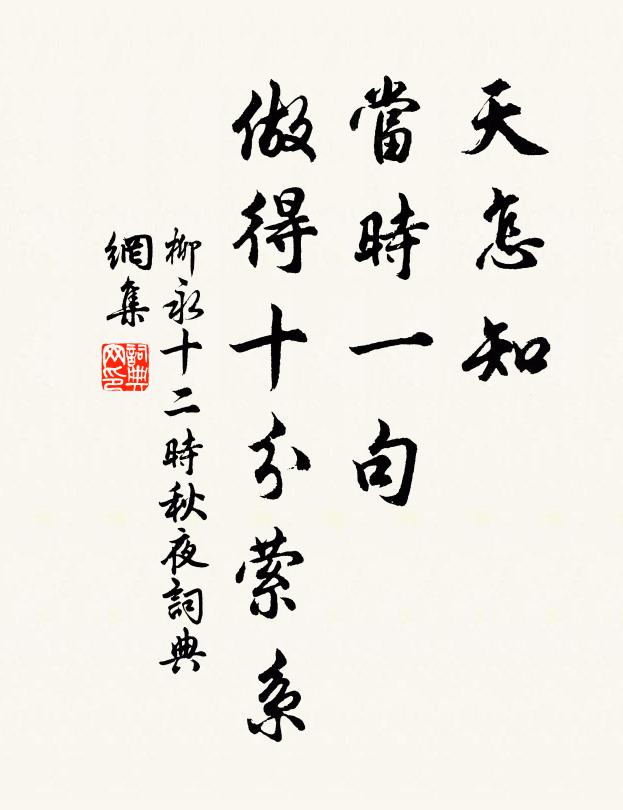 天怎知
當時一句
做得十分縈系
柳永十二時秋夜詞典
網集
詞典
网印